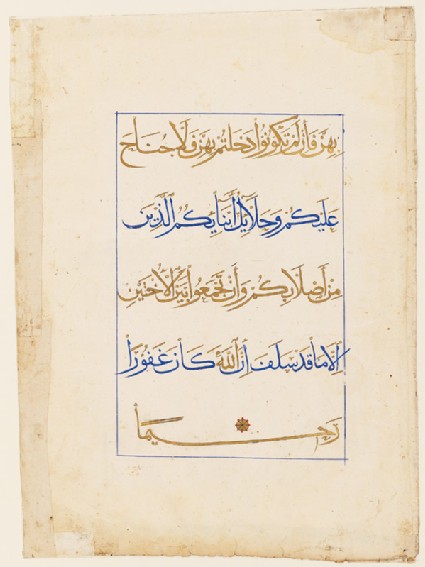 بهن فان لم تكونوا دخلتم بهن فلا جناح
عليكم وحلايل أبنايكم الذين
من أصلابكم وأن تجمعوا بين الأختين
إلا ما قد سلف ان الله كان غفورا
رحيما